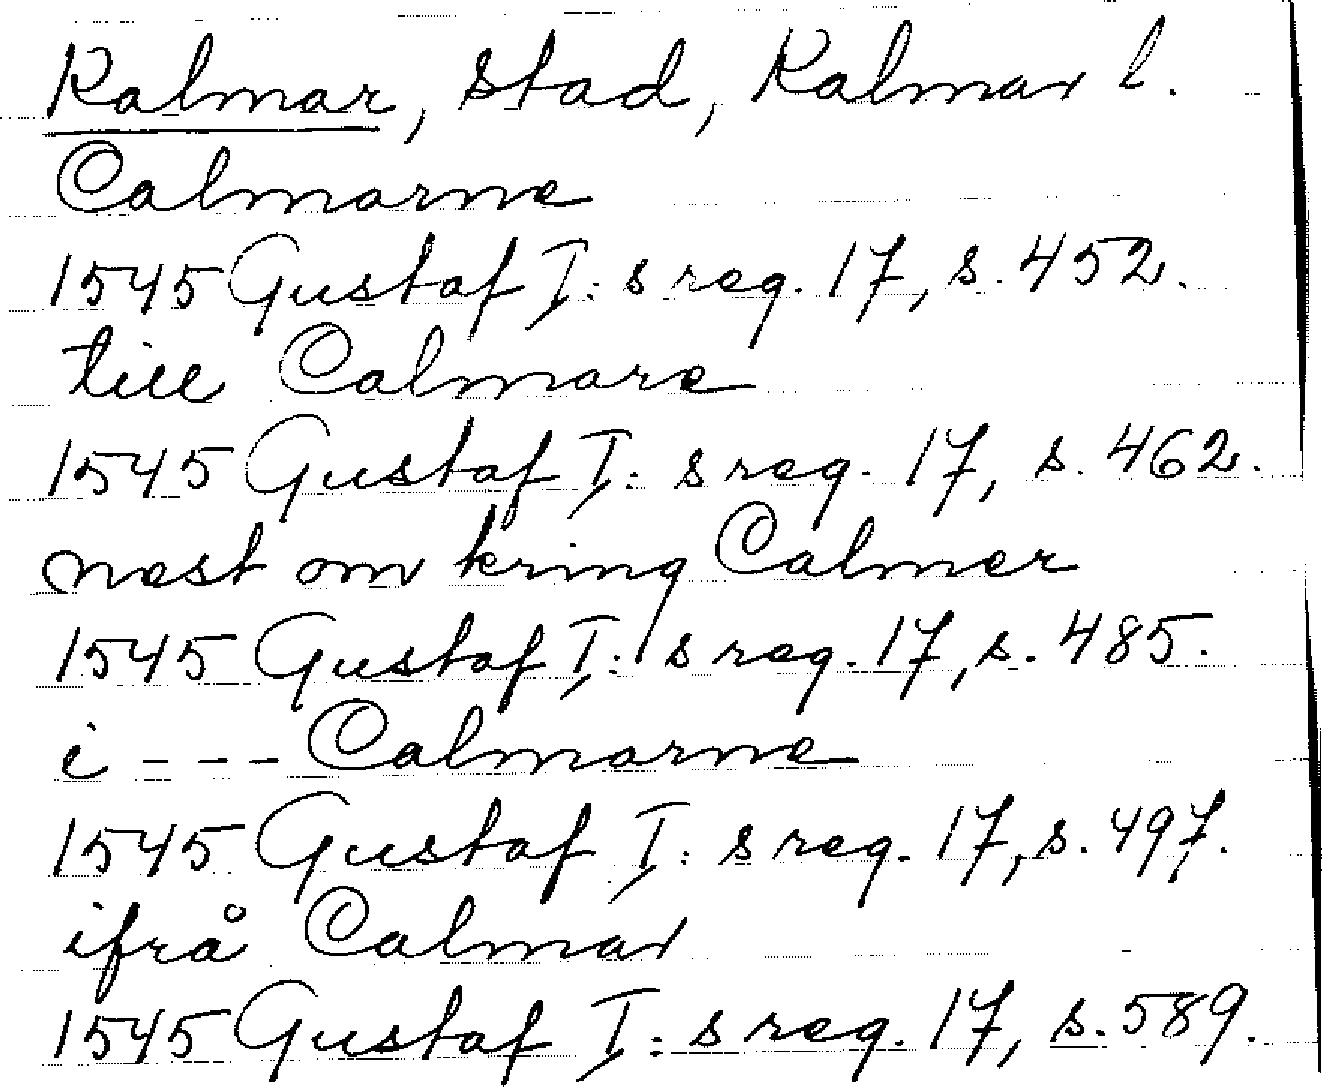 Kalmar, stad, Kalmar l.
Calmarne
1545 Gustaf I: s reg. 17, s. 452.
till Calmare
1545 Gustaf I: s reg. 17, s. 462.
nest om kring Calmer
1545 Gustaf I: s reg. 17, s. 485.
i --- Calmarne
1545 Gustaf I: s reg. 17, s. 497.
ifrå Calmar
1545 Gustaf I: s reg. 17, s. 589.